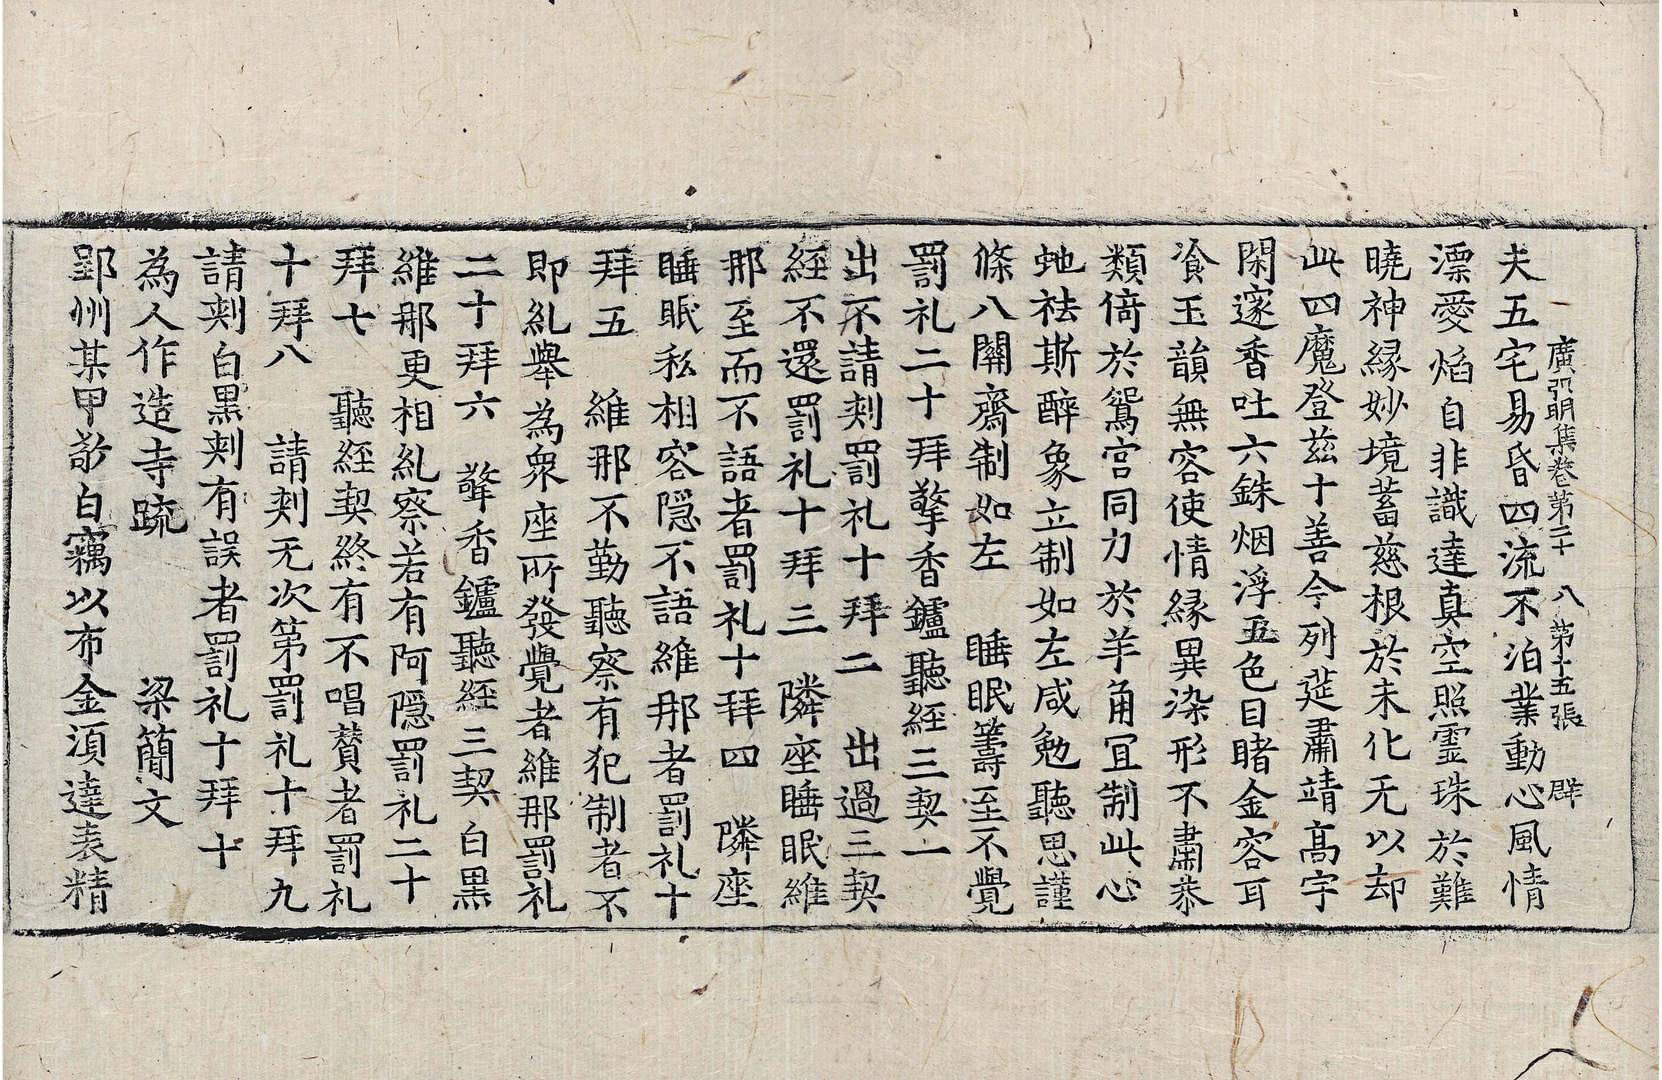 廣弘明集卷第二十八 第十五張 群
夫五宅易昏四流不泊業動心風情
漂愛焰自非識達真空照靈珠於難
曉神縁妙境蓄慈根於未化无以却
此四魔登茲十善今列莚肅靖高宇
閑邃香吐六銖烟浮五色目睹金容耳
飡玉韻無容使情縁異染形不肅恭
類倚於鴛宮同力於羊角冝制此心
虵祛斯醉象立制如左咸勉聽思謹
條八關齋制如左 睡眠籌至不覺
罰礼二十拜擎香鑪聽經三契一
出不請刾罰礼十拜二 出過三契
經不還罰礼十拜三 隣座睡眠維
那至而不語者罰礼十拜四 隣座
睡眠私相容隠不語維那者罰礼十
拜五 維那不勤聽察有犯制者不
即糺舉為衆座所發覺者維那罰礼
二十拜六 擎香鑪聽經三契 白黒
維那更相糺察若有阿隠罰礼二十
拜七 聽經契終有不唱賛者罰礼
十拜八 請刾无次第罰礼十拜九
請刾白黒刾有誤者罰礼十拜十
為人作造寺䟽 梁簡文
郢州某甲敬白竊以布金湏達表精